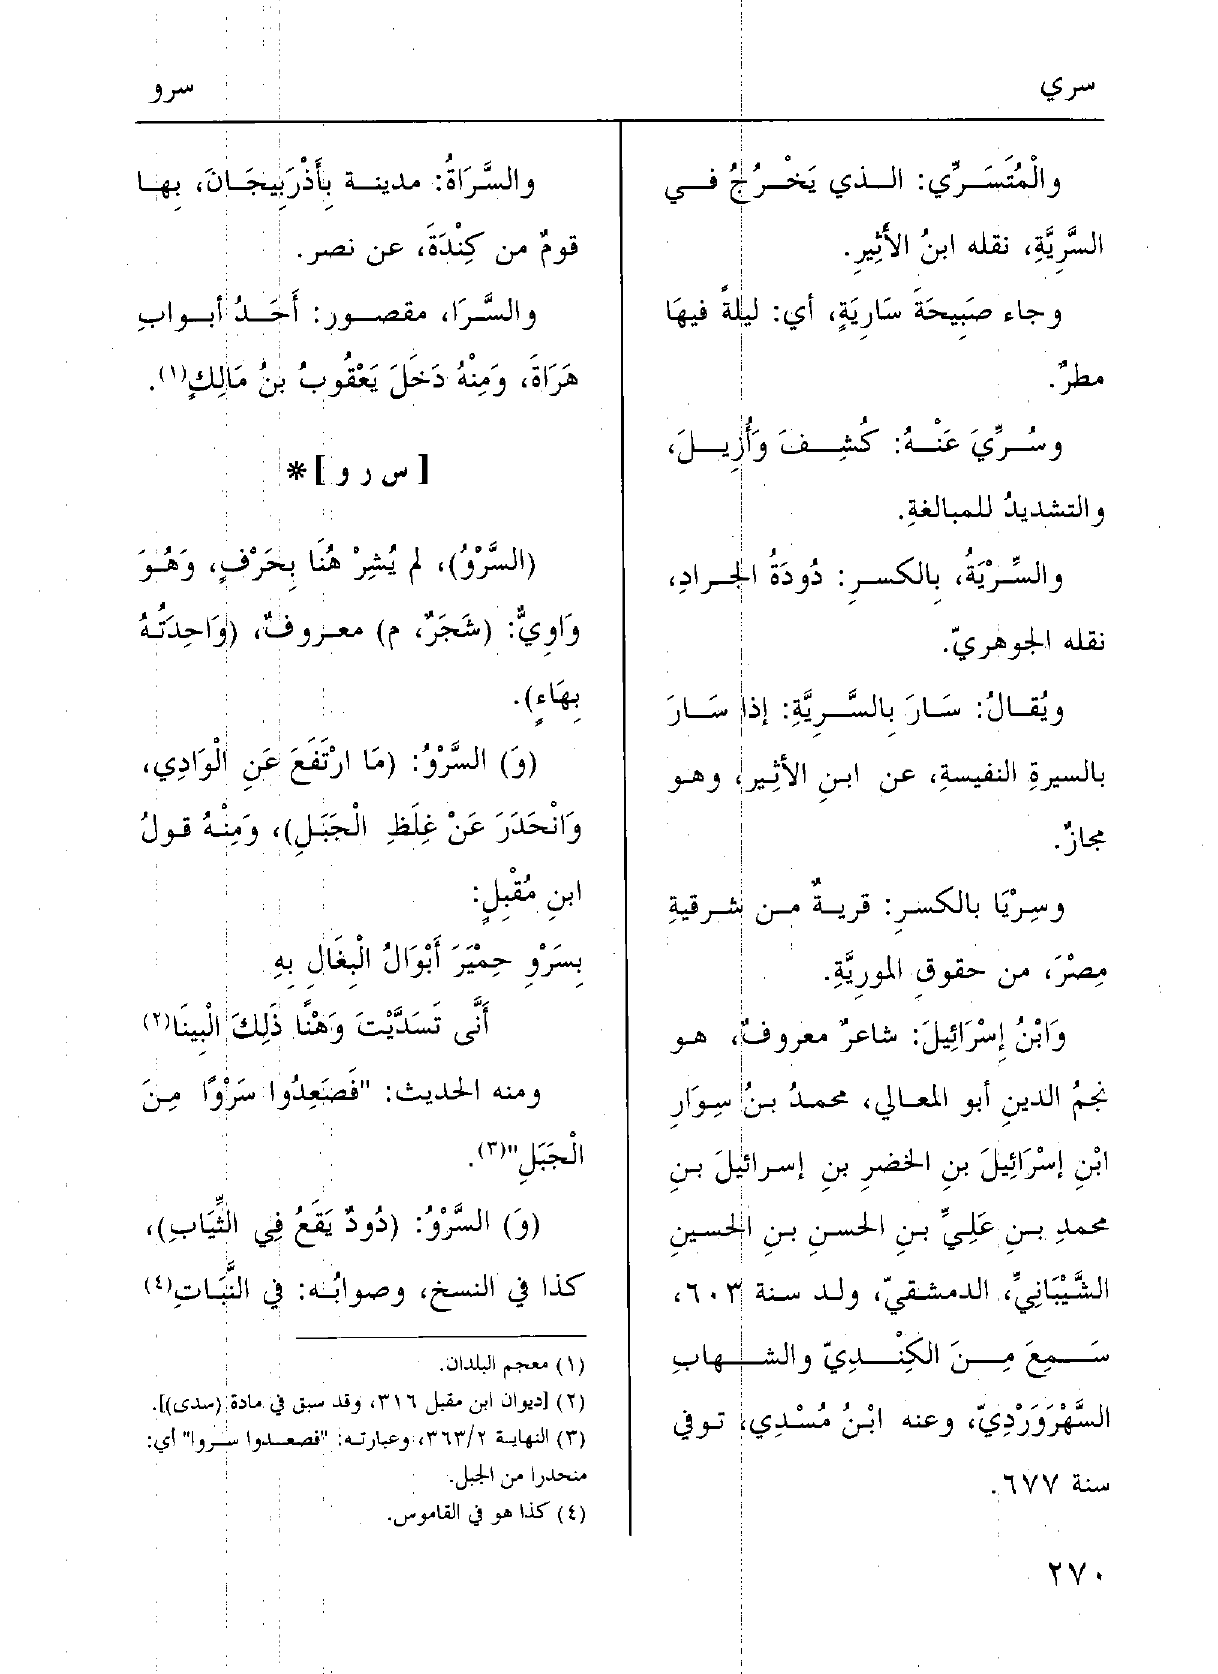 سري
سرو
والْمُتَسَرِّي: الـذي يَخْـرُجُ فـي
السَّرِيَّةِ، نقله ابنُ الأَثِيرِ.
وجاء صَبِيحَةَ سَارِيَةٍ، أي: ليلةً فيهَا
مطرٌ.
وسُـرِّيَ عَنْـهُ: كُشِـفَ وَأُزِيـلَ،
والتشديدُ للمبالغةِ.
والسِّـرْيَةُ، بالكسـرِ: دُودَةُ الجـرادِ،
نقله الجوهريّ.
ويُقـالُ: سَـارَ بِالسَّـرِيَّةِ: إذا سَـارَ
بالسيرةِ النفيسةِ، عن ابـنِ الأثِيـرِ، وهـو
مجازٌ.
وسِـرْيَا بالكسـرِ: قريـةٌ مـن شـرقيةِ
مِصْرَ، من حقوقِ الموريَّةِ.
وَابْنُ إِسْرَائِيلَ: شاعرٌ معروفٌ، هـو
نجمُ الدينِ أبو المعـالي، محمـدُ بـنُ سِـوَارِ
ابْنِ إِسْرَائِيلَ بنِ الخضرِ بنِ إسـرائيلَ بـنِ
محمدِ بـنِ عَلِيِّ بـنِ الحسنِ بـنِ الحسينِ
الشَّيْبَانِيِّ، الدمشقيّ، ولـد سـنة ٦٠٣،
سَـمِعَ مِـنَ الكِنْـدِيّ والشـهابِ
السَّهْرَوَرْدِيّ، وعنه ابْنُ مُسْدِي، تـوفي
سنة ٦٧٧.
والسَّرَاةُ: مدينـة بِأَذْرَبِيجَـانَ، بهـا
قومٌ من كِنْدَةَ، عن نصر.
والسَّـرَا، مقصـور: أَحَـدُ أبـوابِ
هَرَاةَ، وَمِنْهُ دَخَلَ يَعْقُوبُ بنُ مَالِكٍ(١).
[ س ر و ] *
(السَّرْوُ)، لم يُشِرْ هُنَا بِحَرْفٍ، وَهُـوَ
وَاوِيٌّ: (شَجَرٌ، م) معـروفٌ، (وَاحِدَتُهُ
بِهَاءٍ).
(وَ) السَّرْوُ: (مَا ارْتَفَعَ عَنِ الْوَادِي،
وَانْحَدَرَ عَنْ غِلَظِ الْجَبَـلِ)، وَمِنْـهُ قـولُ
ابنِ مُقْبِلٍ:
بِسَرْوِ حِمْيَرَ أَبْوَالُ الْبِغَالِ بِهِ
أَنَّى تَسَدَّيْتَ وَهْنًا ذَلِكَ الْبِينَا(٢)
ومنه الحديث: "فَصَعِدُوا سَرْوًا مِـنَ
الْجَبَلِ"(٣).
(وَ) السَّرْوُ: (دُودٌ يَقَعُ فِي الثِّيَابِ)،
كذا في النسخ، وصوابُـه: في النَّبَـاتِ(٤)
(١) معجم البلدان.
(٢) [ديوان ابن مقبل ٣١٦، وقد سبق في مادة (سدى)].
(٣) النهايـة ٣٦٣/٢، وعبارتـه: "فصعـدوا سـروا" أي:
منحدرا من الجبل.
(٤) كذا هو في القاموس.
٢٧٠